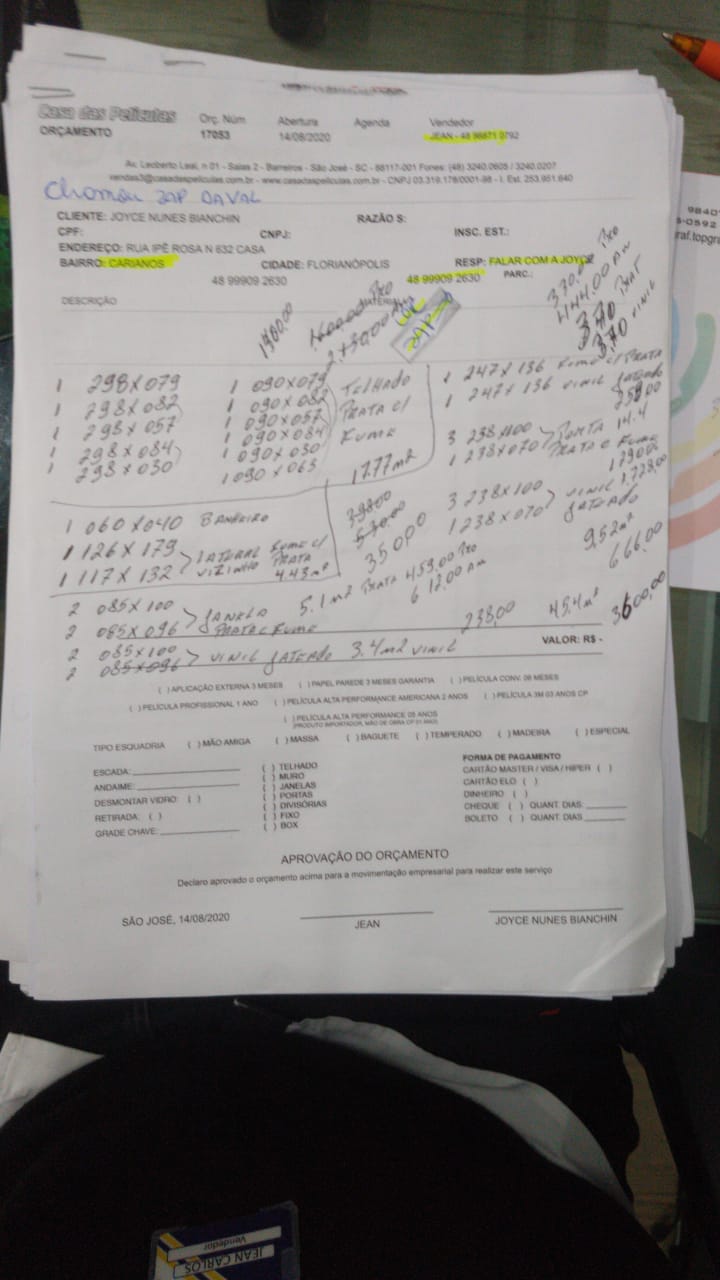 Casa das Películas
ORÇAMENTO
Orç. Núm
17053
Abertura
14/08/2020
Agenda
Vendedor
JEAN - 48
Av. Leoberto Leal, n 01 - Salas 2 - Barreiros - São José - SC - 88117-001 Fones: (48) 3240.0605 / 3240.0207
vendas3@casadaspeliculas.com.br - www.casadaspeliculas.com.br - CNPJ 03.319.178/0001-98 - I. Est. 253.951.640
Chamou ZAP
CLIENTE: JOYCE NUNES BIANCHIN
RAZÃO S:
CPF:
CNPJ:
INSC. EST.:
ENDEREÇO: RUA IPÊ ROSA N 632 CASA
BAIRRO: CARIANOS
CIDADE: FLORIANÓPOLIS
RESP: FALAR COM A JOYCE
48 99909 2630
48 99909 2630
PARC.:
DESCRIÇÃO
1 298X079
1 298X082
1 298X057
1 298X084
1 298X030
1 090X079
1 090X082
1 090X057
1 090X084
1 090X030
1 090X063
TELHADO
PRATA C/
FUME
17.77m²
1 247X136 FUME C/ PRATA
1 247X136 VINIL JATEADO
3 238X100
1 238X070
PORTA 14.4
PRATA C FUME
3 238X100
1 238X070
VINIL 1.728,00
JATEADO
9.52m²
666,00
1 060X040 BANHEIRO
1 126X179
1 117X132
LATERAL FUME C/
VIZINHO PRATA
4.43m²
398,00
530,00
350,00
2 085X100
2 085X096
JANELA
PRATA C FUME
5.1m2 PRATA 459,00 PRO
612,00 AM
2 085X100
2 085X096
VINIL JATEADO 3.4m2 VINIL
238,00
45.4m²
3600,00
VALOR: R$ -
( ) APLICAÇÃO EXTERNA 3 MESES ( ) PAPEL PAREDE 3 MESES GARANTIA ( ) PELÍCULA CONV. 06 MESES
( ) PELÍCULA PROFISSIONAL 1 ANO ( ) PELÍCULA ALTA PERFORMANCE AMERICANA 2 ANOS ( ) PELÍCULA 3M 03 ANOS CP
( ) PELÍCULA ALTA PERFORMANCE 05 ANOS
TIPO ESQUADRIA ( ) MÃO AMIGA ( ) MASSA ( ) BAGUETE ( ) TEMPERADO ( ) MADEIRA ( ) ESPECIAL
ESCADA:
ANDAIME:
DESMONTAR VIDRO: ( )
RETIRADA: ( )
GRADE CHAVE:
( ) TELHADO
( ) MURO
( ) JANELAS
( ) PORTAS
( ) DIVISÓRIAS
( ) FIXO
( ) BOX
FORMA DE PAGAMENTO
CARTÃO MASTER / VISA / HIPER ( )
CARTÃO ELO ( )
DINHEIRO ( )
CHEQUE ( ) QUANT. DIAS:
BOLETO ( ) QUANT. DIAS
APROVAÇÃO DO ORÇAMENTO
Declaro aprovado o orçamento acima para a movimentação empresarial para realizar este serviço
SÃO JOSÉ, 14/08/2020
JEAN
JOYCE NUNES BIANCHIN
JEAN CARLOS
Vendedor